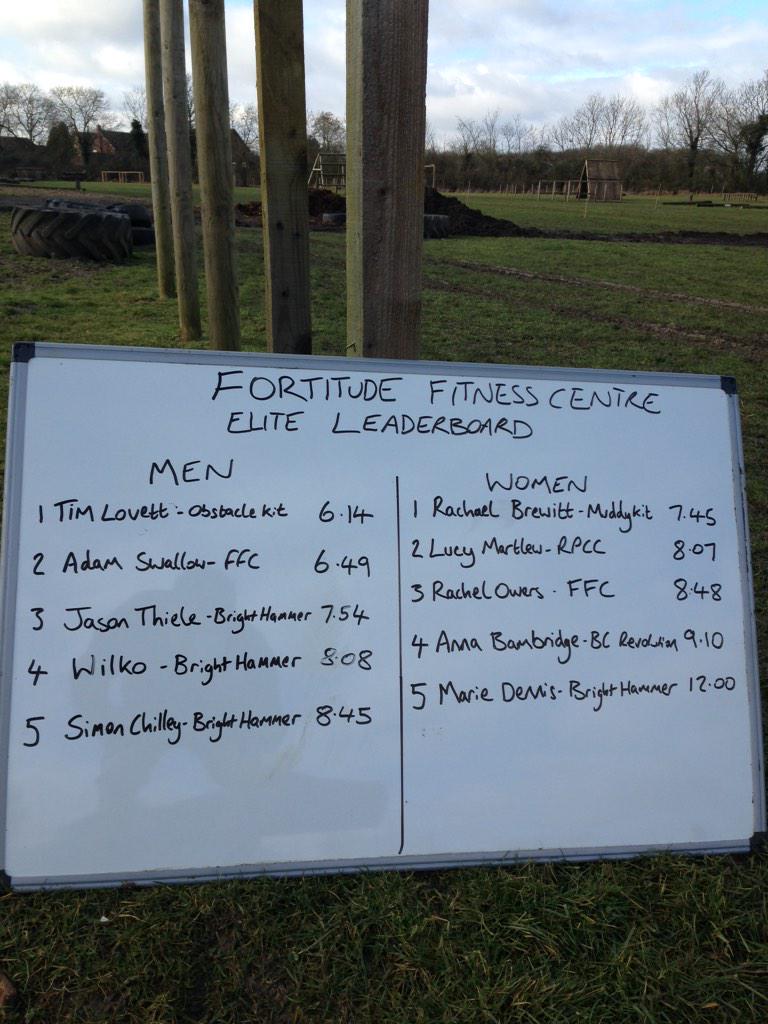 FORTITUDE FITNESS CENTRE
ELITE LEADERBOARD
MEN
1 Tim Lovett - Obstacle kit 6.14
2 Adam Swallow - FFC 6.49
3 Jason Thiele - Bright Hammer 7.54
4 Wilko - Bright Hammer 8.08
5 Simon Chilley - Bright Hammer 8.45
WOMEN
1 Rachael Brewitt - Muddykit 7.45
2 Lucy Martlew - RPCC 8.07
3 Rachel Owers - FFC 8.48
4 Anna Bambridge - BC Revolution 9.10
5 Marie Dennis - Bright Hammer 12.00